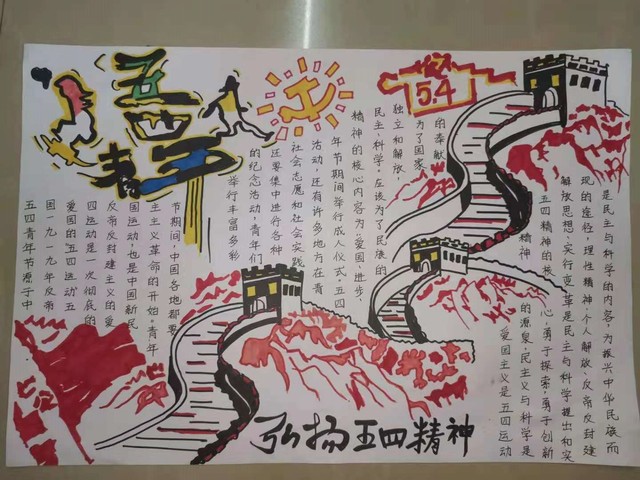 五四青年
5.4
五四青年节源于中
国一九一九年反帝
爱国的"五四运动"五
四运动是一次彻底的
反帝反封建主义的爱
国运动,也是中国新民
主主义革命的开始。青年
节期间,中国各地都要
举行丰富多彩
的纪念活动,青年们
还要集中进行各种
社会志愿和社会实践
活动,还有许多地方在青
年节期间举行成人仪式。五四
精神的核心内容为:爱国、进步、
民主、科学。应该为了民族的
独立和解放,
为了国家
的奉献
爱国主义是五四运动
精神的源泉,民主义与科学是
五四精神的核心,勇于探索、勇于创新
解放思想、实行变革是民主与科学提出和实
现的途径,理性精神、个人解放、反帝反封建
是民主与科学的内容,为振兴中华民族而
弘扬五四精神